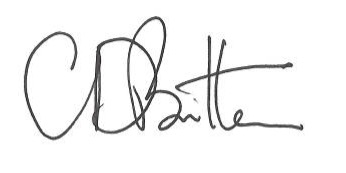 CD Britten